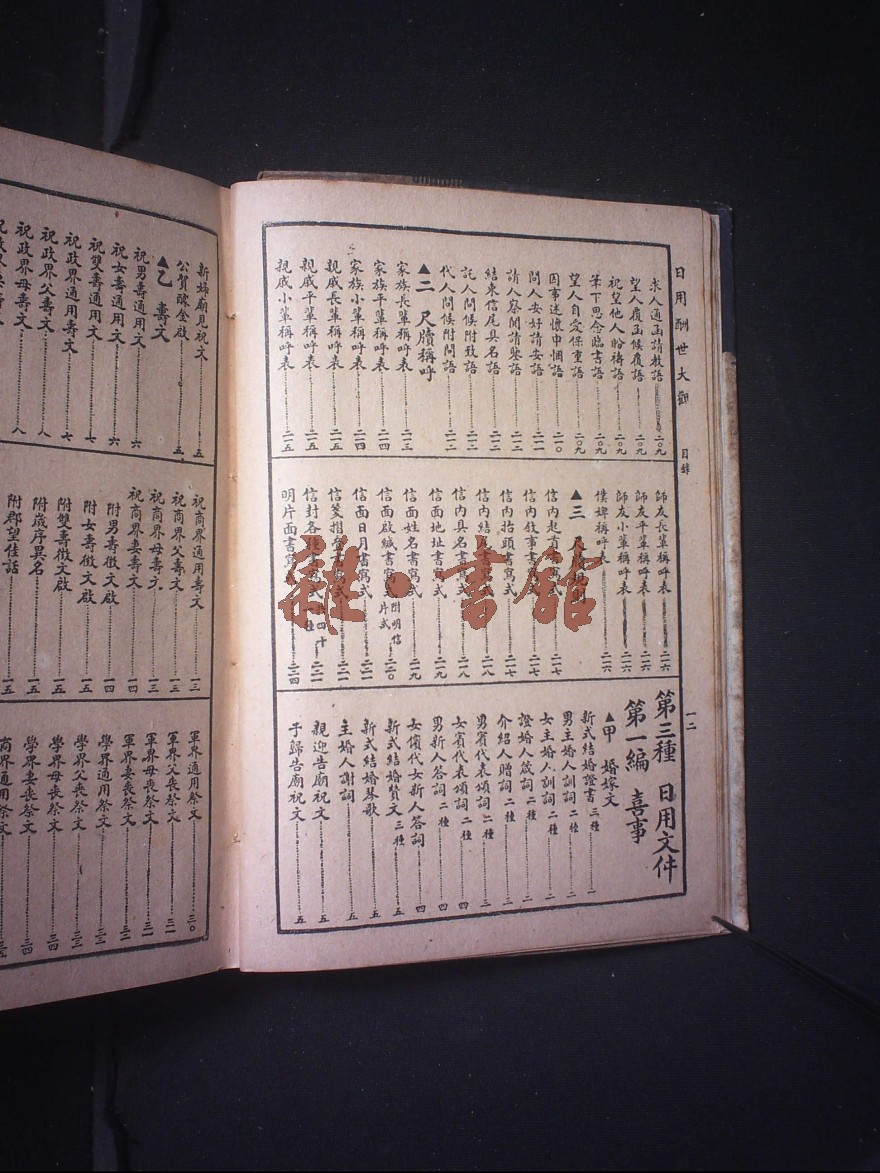 日用酬世大觀
目錄
一二
求人通函請教語 二〇九
望人覆函候復語 二〇九
祝望他人盼禱語 二〇九
筆下思念臨書語 二〇九
望人自愛保重語 二〇九
因事述懷申悃語 二一〇
問人安好請安語 二一一
請人察閱請鑒語 二一二
結束信尾具名語 二一二
託人問候附致語 二一二
代人問候附問語 二一二
▲二 尺牘稱呼
家族長輩稱呼表 二一三
家族平輩稱呼表 二一四
家族小輩稱呼表 二一四
親戚長輩稱呼表 二一五
親戚平輩稱呼表 二一五
親戚小輩稱呼表 二一五
師友長輩稱呼表 二一六
師友平輩稱呼表 二一六
師友小輩稱呼表 二一六
僕婢稱呼表 二一六
▲三 尺牘規則
信內起首書寫式 二一七
信內敘事書寫式 二一七
信內抬頭書寫式 二一七
信內結尾書寫式 二一八
信內具名書寫式 二一八
信面地址書寫式 二一九
信面姓名書寫式 二一九
信面啟緘書寫式 附明信片式 二二〇
信面日月書寫式 二二一
信箋摺疊書寫式 二二一
信封各種書寫式 二二一
明片面書寫 二二四
第三種 日用文件
第一編 喜事
▲甲 婚嫁文
新式結婚證書 三種 一
男主婚人訓詞 二種 一
女主婚人訓詞 二種 二
證婚人箴詞 二種 二
介紹人贈詞 二種 二
男賓代表頌詞 二種 三
女賓代表頌詞 二種 四
男新人答詞 二種 四
女儐代女新人答詞 四
新式結婚贊文 三種 五
新式結婚琴歌 五
主婚人謝詞 五
親迎告廟祝文 五
于歸告廟祝文 五
新婦廟見祝文 五
公賀醵金啟 五
▲乙 壽文
祝男壽通用文 六
祝女壽通用文 六
祝雙壽通用文 七
祝政界通用壽文 七
祝政界父壽文 八
祝政界母壽文 八
祝商界通用壽文 一三
祝商界父壽文 一三
祝商界母壽文 一三
祝商界妻壽文 一四
附男壽徵文啟 一四
附女壽徵文啟 一五
附雙壽徵文啟 一五
附歲序異名 一五
附郡望佳話 一五
軍界通用祭文 三〇
軍界父喪祭文 三一
軍界母喪祭文 三一
軍界妻喪祭文 三二
學界通用祭文 三三
學界父喪祭文 三三
學界母喪祭文 三四
學界妻喪祭文 三四
雜·書館